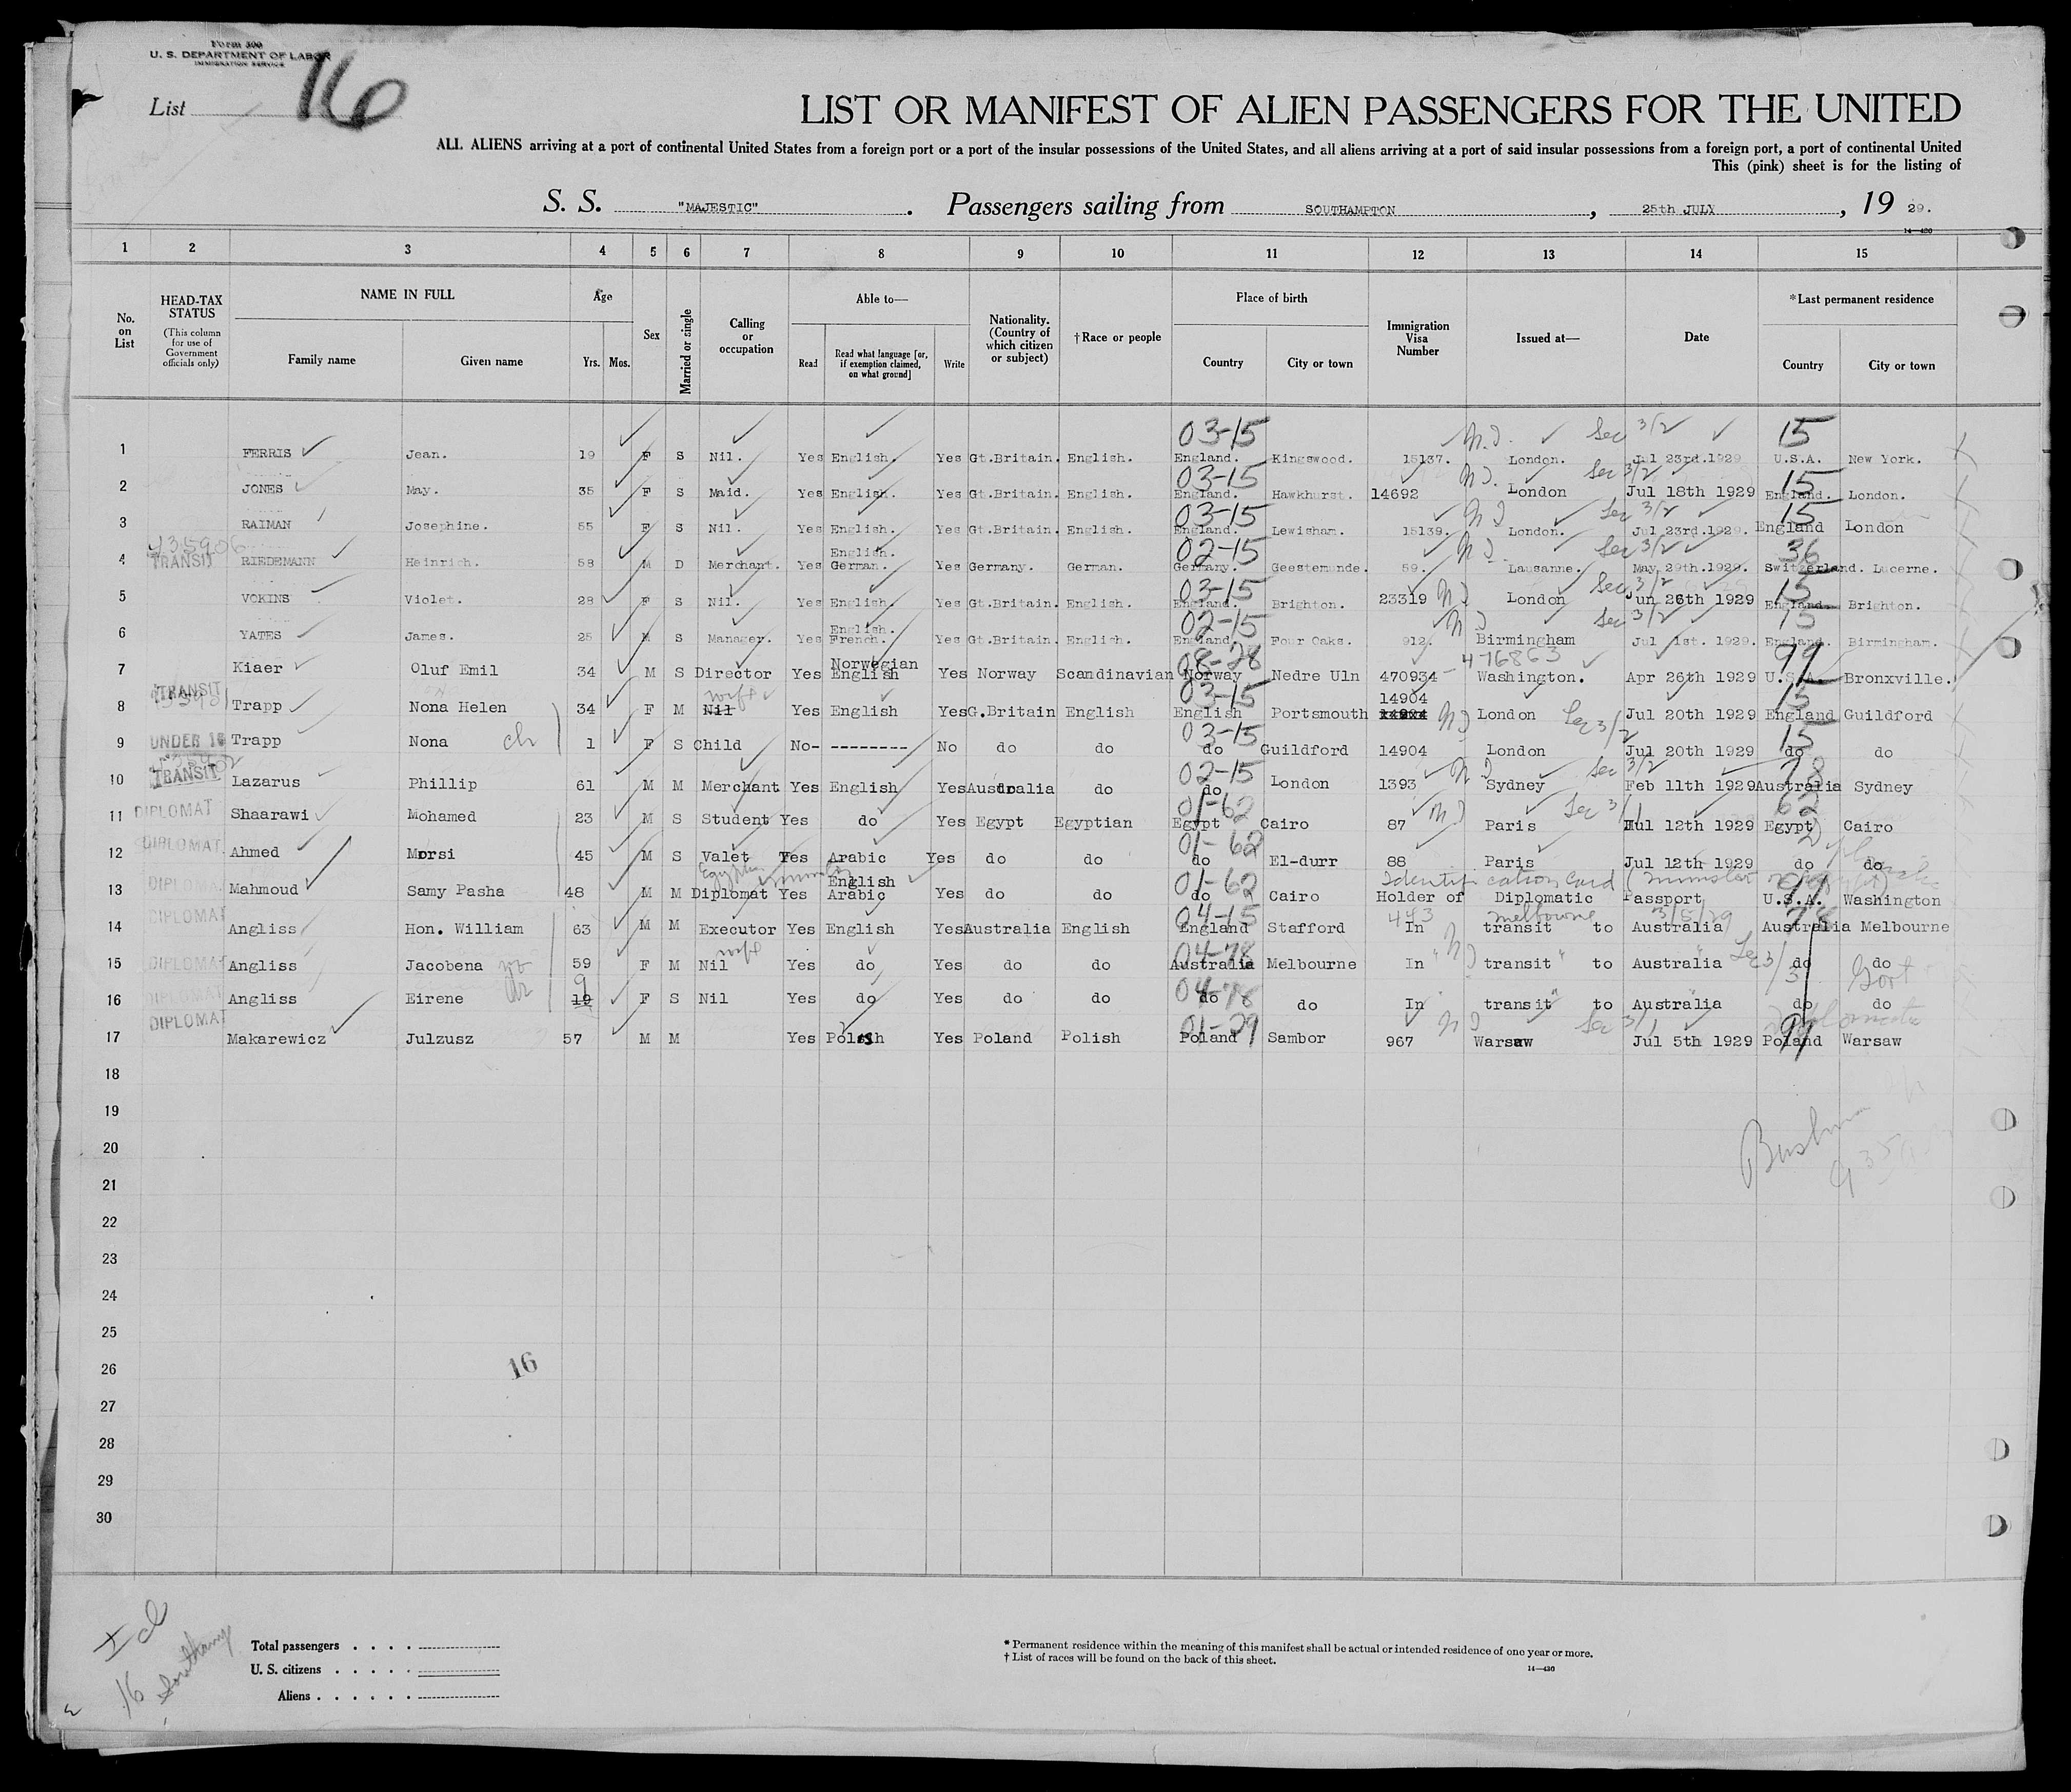 Form 500
U. S. DEPARTMENT OF LABOR
IMMIGRATION SERVICE
List 16
LIST OR MANIFEST OF ALIEN PASSENGERS FOR THE UNITED
ALL ALIENS arriving at a port of continental United States from a foreign port or a port of the insular possessions of the United States, and all aliens arriving at a port of said insular possessions from a foreign port, a port of continental United
This (pink) sheet is for the listing of
S. S. "MAJESTIC". Passengers sailing from SOUTHAMPTON, 25th JULY, 19 29.
14—430
1 2 3 4 5 6 7 8 9 10 11 12 13 14 15
No. on List HEAD-TAX STATUS (This column for use of Government officials only) NAME IN FULL Family name Given name Age Yrs. Mos. Sex Married or single Calling or occupation Able to— Read Read what language [or, if exemption claimed, on what ground] Write Nationality. (Country of which citizen or subject) †Race or people Place of birth Country City or town Immigration Visa Number Issued at— Date *Last permanent residence Country City or town
03-15 N.D. Sec 3/2 15
1 FERRIS Jean. 19 F S Nil. Yes English. Yes Gt.Britain. English. England. Kingswood. 15137. London. Jul 23rd.1929 U.S.A. New York.
03-15 N.D. Sec 3/2 15
2 JONES May. 35 F S Maid. Yes English. Yes Gt.Britain. English. England. Hawkhurst. 14692 London Jul 18th 1929 England. London.
03-15 N D Sec 3/2 15
3 RAIMAN Josephine. 55 F S Nil. Yes English. Yes Gt.Britain. English. England. Lewisham. 15139. London. Jul 23rd.1929. England London
435906 English. 02-15 N D. Sec 3/2 36
4 TRANSIT RIEDEMANN Heinrich. 58 M D Merchant. Yes German. Yes Germany. German. Germany. Geestemunde. 59. Lausanne. May 29th.1929. Switzerland. Lucerne.
03-15 Sec 3/2 15
5 VOKINS Violet. 28 F S Nil. Yes English. Yes Gt.Britain. English. England. Brighton. 23319 N D London Jun 26th 1929 England. Brighton.
English. 02-15 N D Sec 3/2 15
6 YATES James. 25 M S Manager. Yes French. Yes Gt.Britain. English. England. Four Oaks. 912. Birmingham Jul 1st. 1929. England. Birmingham.
Norwegian 08-28 476863 99
7 Kiaer Oluf Emil 34 M S Director Yes English Yes Norway Scandinavian Norway Nedre Uln 470934 Washington. Apr 26th 1929 U.S.A. Bronxville.
TRANSIT wife 03-15 14904 15
8 Trapp Nona Helen 34 F M Nil Yes English Yes G.Britain English English Portsmouth N D London Sec 3/2 Jul 20th 1929 England Guildford
03-15 15
9 UNDER 16 Trapp Nona ch 1 F S Child No- -------- No do do do Guildford 14904 London Jul 20th 1929 do do
02-15 N D Sec 3/2 78
10 TRANSIT Lazarus Phillip 61 M M Merchant Yes English Yes Australia do do London 1393 Sydney Feb 11th 1929 Australia Sydney
01-62 N D Sec 3/1 62
11 DIPLOMAT Shaarawi Mohamed 23 M S Student Yes do Yes Egypt Egyptian Egypt Cairo 87 Paris Jul 12th 1929 Egypt Cairo
01-62
12 DIPLOMAT Ahmed Morsi 45 M S Valet Yes Arabic Yes do do do El-durr 88 Paris Jul 12th 1929 do do
Egyptian minister English 01-62 Identification Card (Minister 99
13 DIPLOMAT Mahmoud Samy Pasha 48 M M Diplomat Yes Arabic Yes do do do Cairo Holder of Diplomatic Passport U.S.A. Washington
04-15 443 Melbourne 3/5/29 78
14 DIPLOMAT Angliss Hon. William 63 M M Executor Yes English Yes Australia English England Stafford In transit to Australia Australia Melbourne
wife 04-78 N D Sec 3/
15 DIPLOMAT Angliss Jacobena wf 59 F M Nil Yes do Yes do do Australia Melbourne In transit to Australia do do
9 04-78 Gort
16 DIPLOMAT Angliss Eirene 19 F S Nil Yes do Yes do do do do In transit to Australia do do
01-29 N D Sec 3/1 Diplomatic 99
17 DIPLOMAT Makarewicz Julzusz 57 M M Yes Polish Yes Poland Polish Poland Sambor 967 Warsaw Jul 5th 1929 Poland Warsaw
18
19
20
21
22
23
24
25
26
16
27
28
29
30
16 Southamp
Total passengers . . . .
U. S. citizens . . . . .
Aliens . . . . . .
* Permanent residence within the meaning of this manifest shall be actual or intended residence of one year or more.
† List of races will be found on the back of this sheet.
14—430